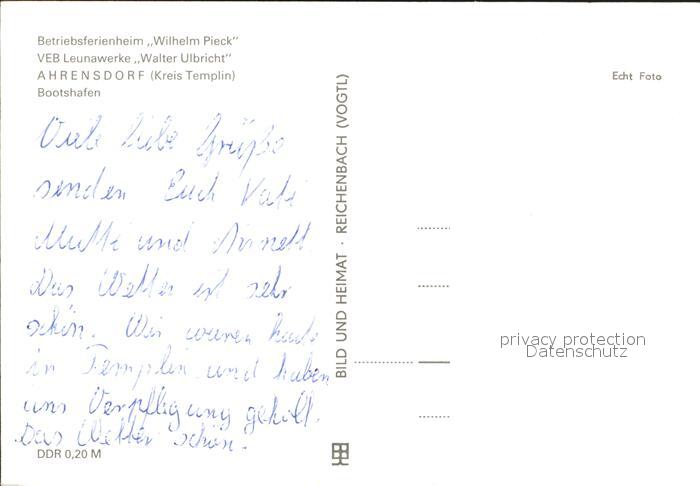 Betriebsferienheim „Wilhelm Pieck"
VEB Leunawerke „Walter Ulbricht"
AHRENSDORF (Kreis Templin)
Bootshafen
Viele liebe Grüße
senden Euch Vati
Mutti und Annett.
Das Wetter ist sehr
schön. Wir waren heute
in Templin und haben
uns Verpflegung geholt.
Das Wetter schön.
DDR 0,20 M
BILD UND HEIMAT · REICHENBACH (VOGTL)
Echt Foto
privacy protection
Datenschutz